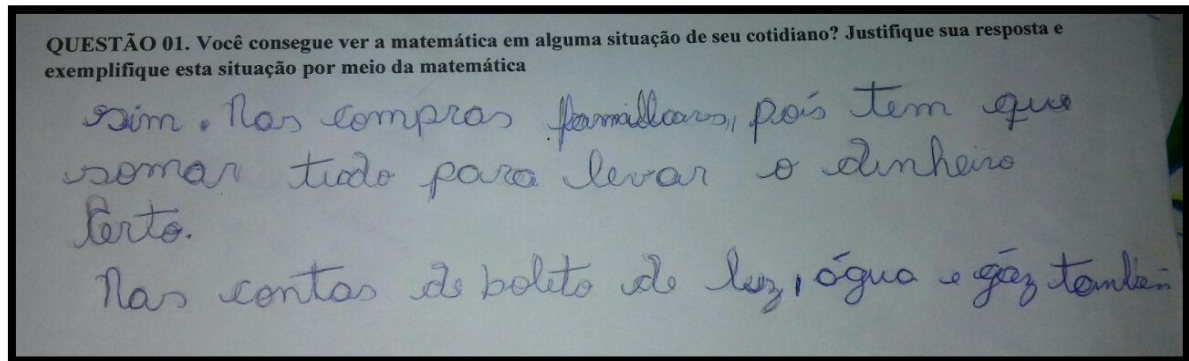 QUESTÃO 01. Você consegue ver a matemática em alguma situação de seu cotidiano? Justifique sua resposta e
exemplifique esta situação por meio da matemática
Sim. Nas compras pois tem que
somar tudo para levar o dinheiro
certo.
Nas contas de boleto de luz, água e gáz também